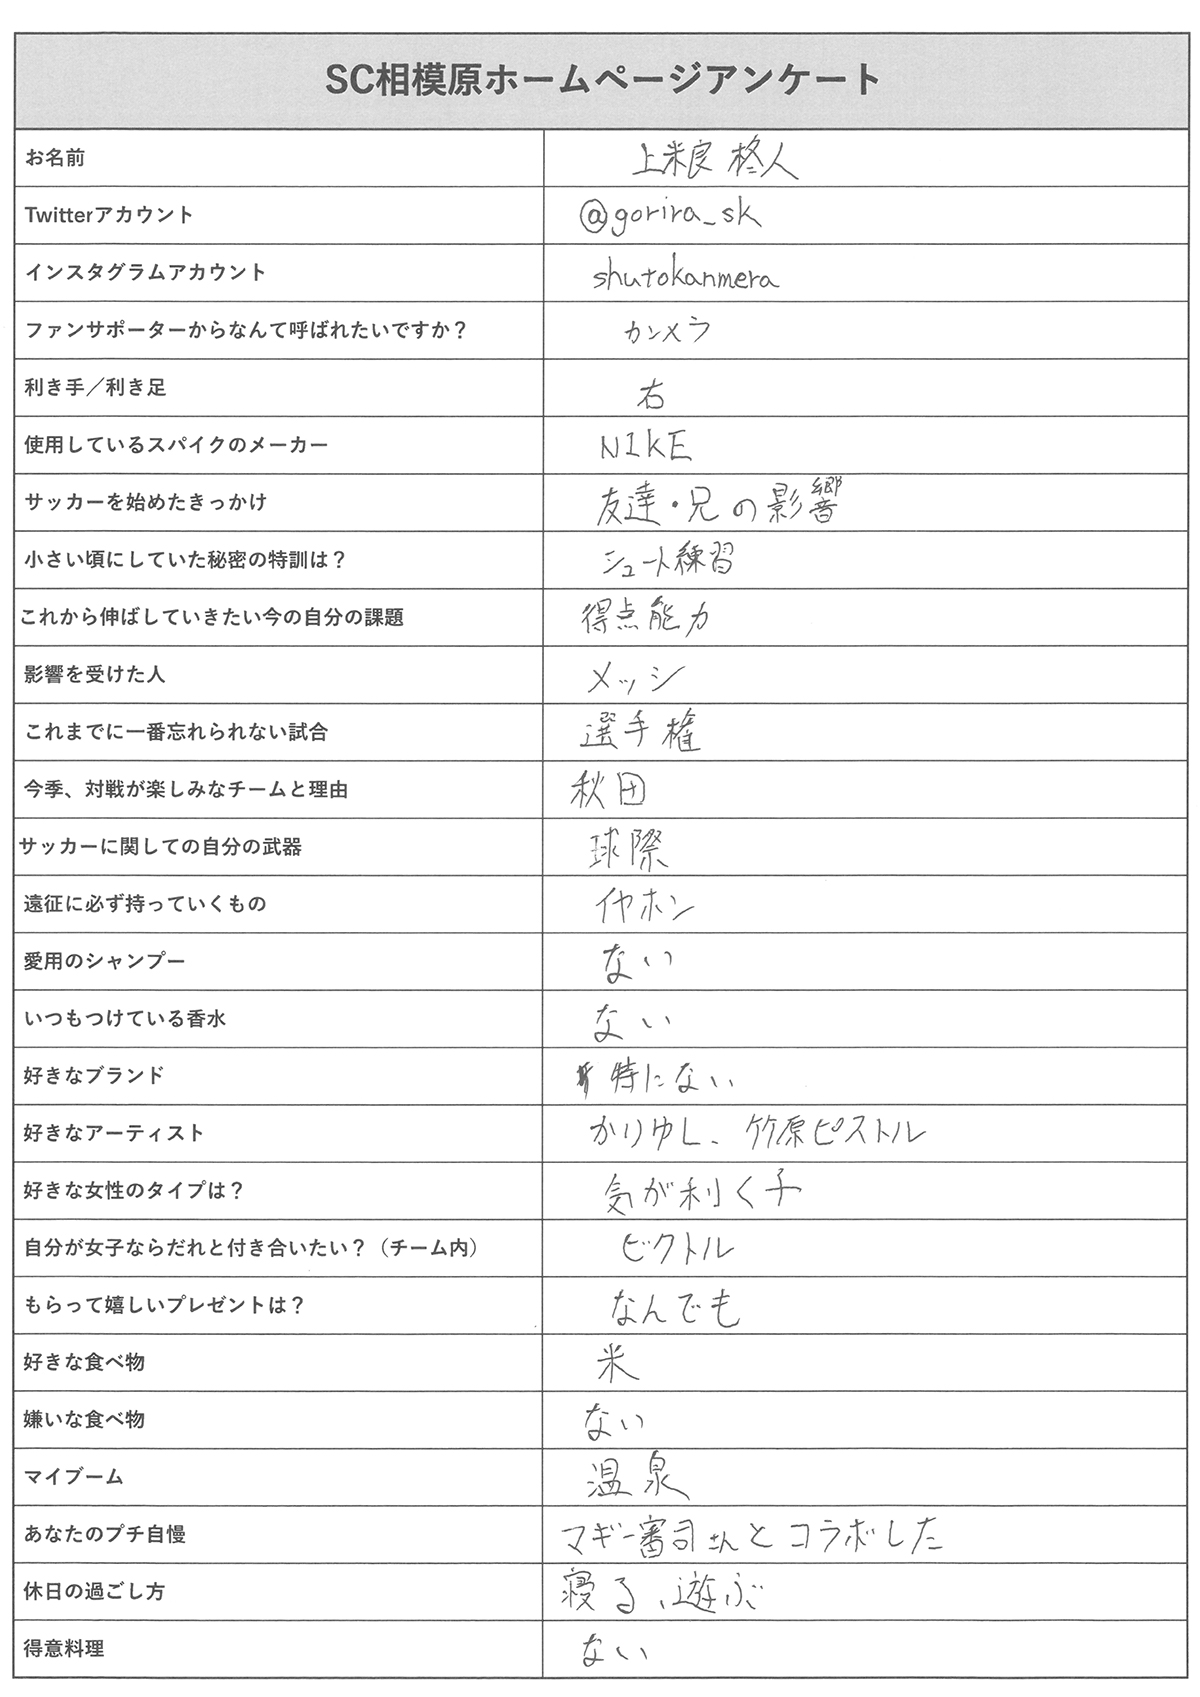 SC相模原ホームページアンケート
お名前 上米良 柊人
Twitterアカウント @gorira_sk
インスタグラムアカウント shutokanmera
ファンサポーターからなんて呼ばれたいですか? カンメラ
利き手／利き足 右
使用しているスパイクのメーカー NIKE
サッカーを始めたきっかけ 友達・兄の影響
小さい頃にしていた秘密の特訓は? シュート練習
これから伸ばしていきたい今の自分の課題 得点能力
影響を受けた人 メッシ
これまでに一番忘れられない試合 選手権
今季、対戦が楽しみなチームと理由 秋田
サッカーに関しての自分の武器 球際
遠征に必ず持っていくもの イヤホン
愛用のシャンプー ない
いつもつけている香水 ない
好きなブランド 特にない
好きなアーティスト かりゆし、竹原ピストル
好きな女性のタイプは? 気が利く子
自分が女子ならだれと付き合いたい?（チーム内） ビクトル
もらって嬉しいプレゼントは? なんでも
好きな食べ物 米
嫌いな食べ物 ない
マイブーム 温泉
あなたのプチ自慢 マギー審司さんとコラボした
休日の過ごし方 寝る、遊ぶ
得意料理 ない